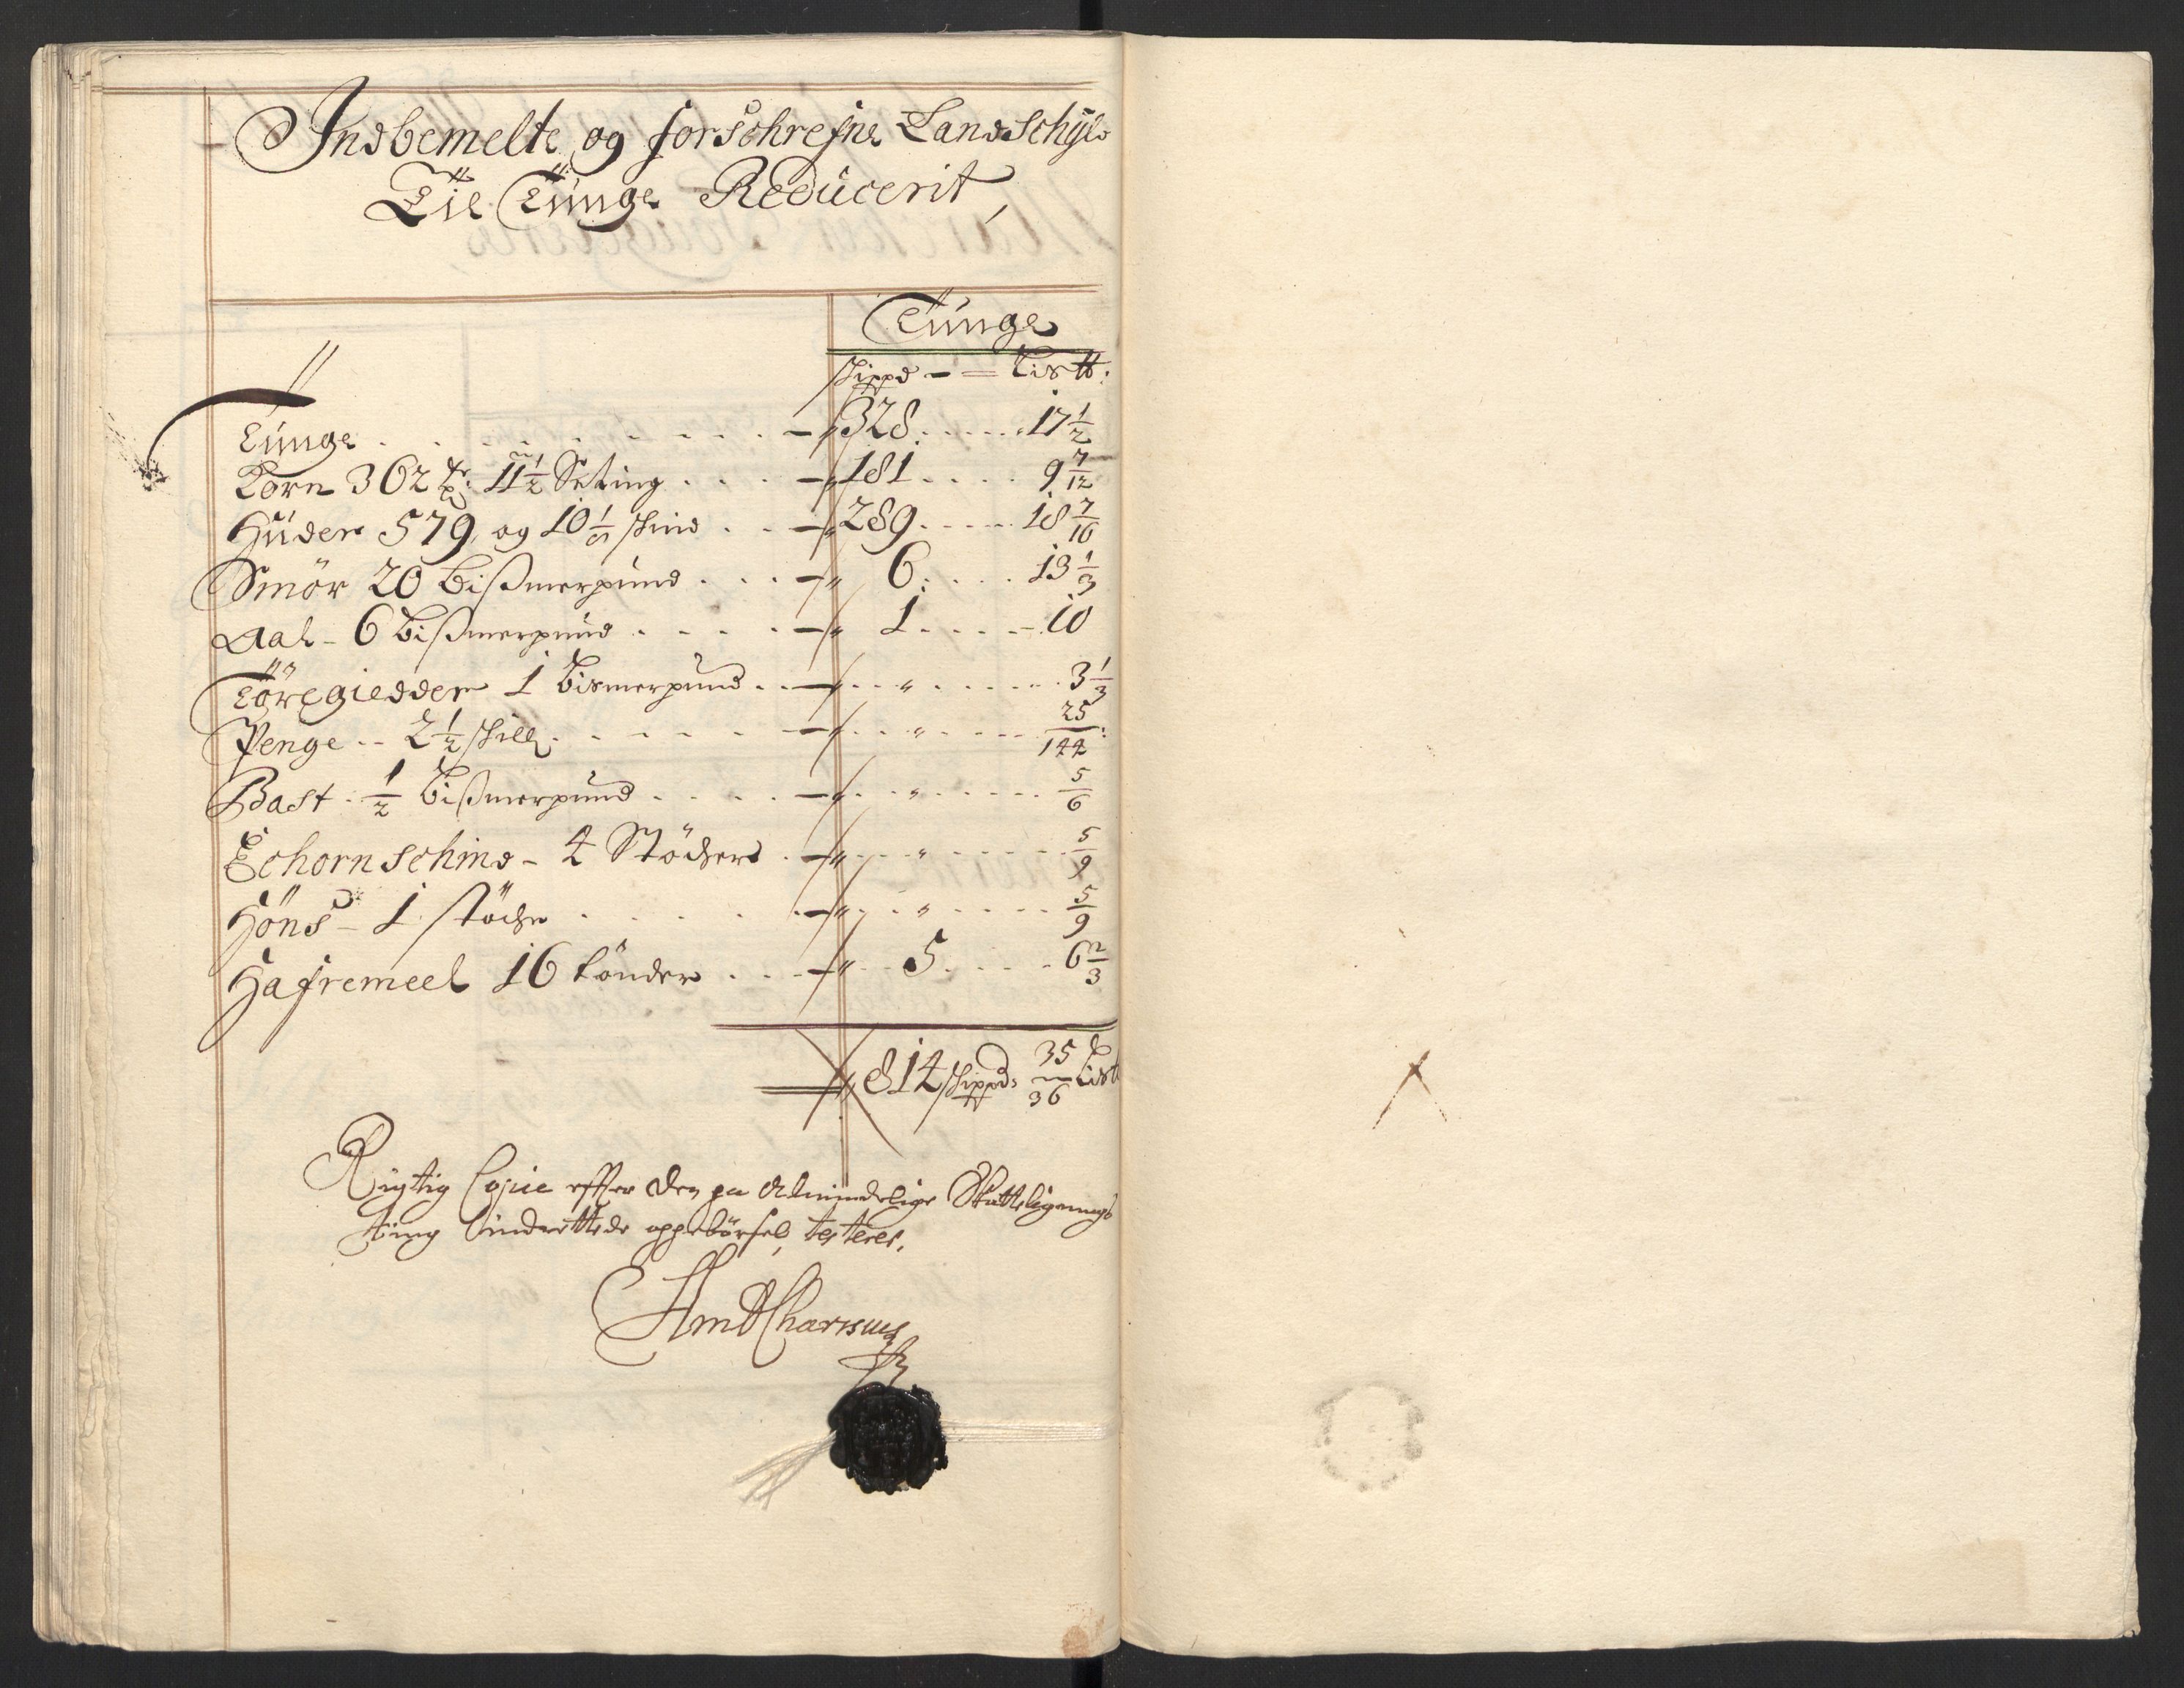 Indbemelte og forschrefne Landschÿld
Til Tünge Reducerit
Tünge
skippd - = Lis℔:
Tünge . . . . . . . . 328 . . . . . 17 1/2
Korn 362 tr: 11 1/2 Seting . . . 181 . . . . 9 7/12
Hüder 579, og 10 1/5 skind . . 289 . . . . 18 7/10
Smör 20 bissmerpund . . . 6 : . . . 13 1/3
Aal - 6 bissmerpund . . . . 1 . . . . 10
Töregiedder 1 bismerpund . . " . . . . . 3 1/3
Penge . . 2 1/2 skill . . . . . " . . . . 25/144 :
Bast . 1/2 bissmerpund . . . . " . . . . . 5/6
Echornschind - 4 Stöcher . " . . . . . 5/9
Höns - 1 . stöche . . . . . " . . . . 5/9
Hafremeel 16 tönder . . . 5 . . . . 6 2/3
814 skippd: 35/36 Lis℔
Rigtig Copie effter den paa Almindelige Skatteligningsting indrettede oppebörsel, testerer.